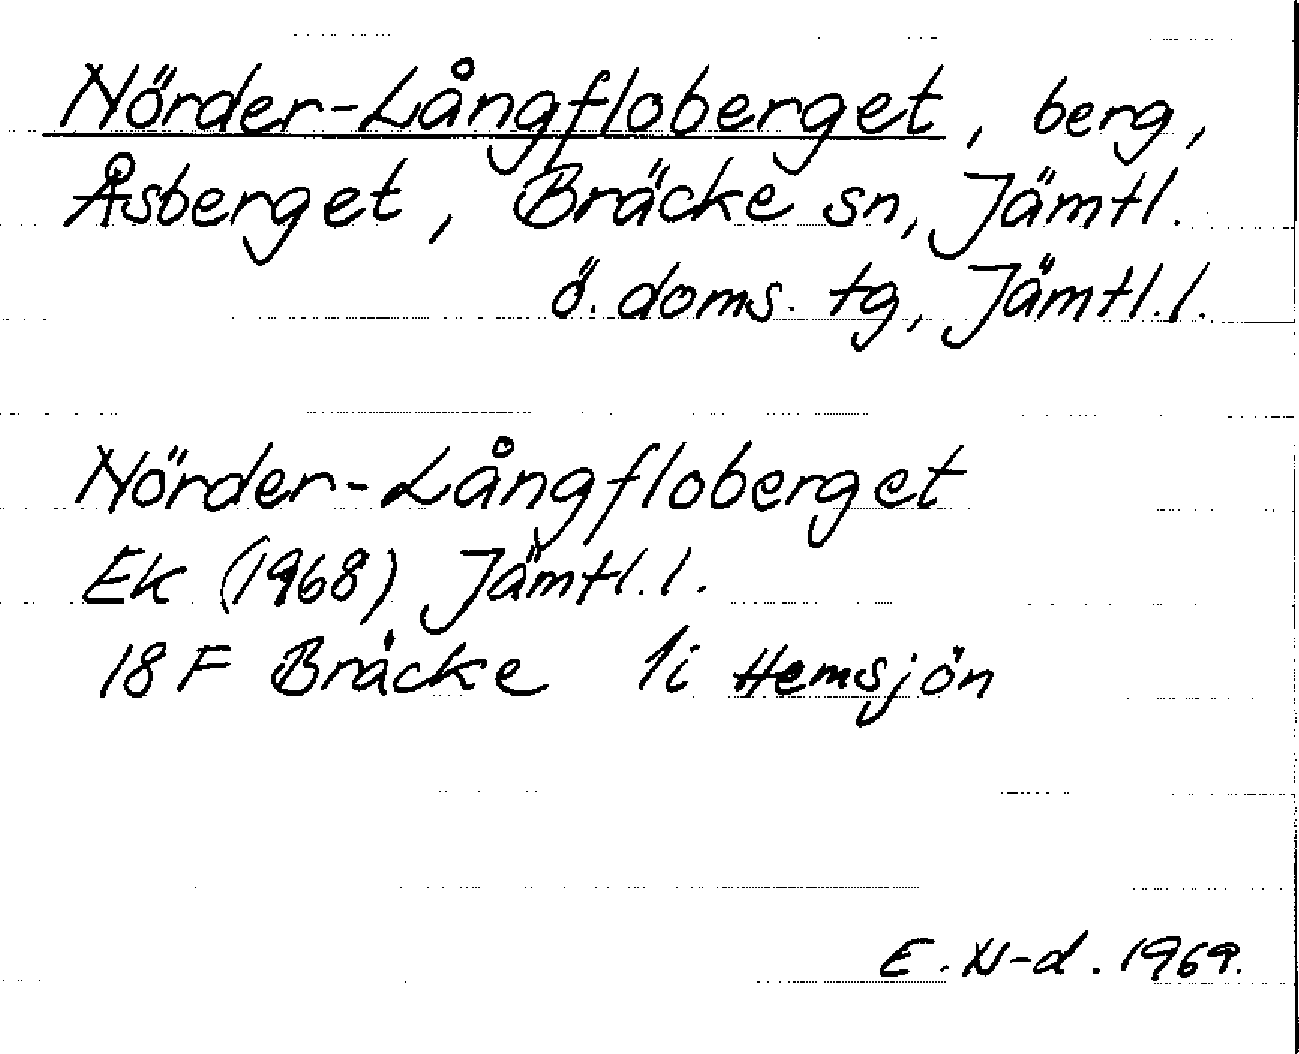 Nörder-Långfloberget, berg,
Åsberget, Bräcke sn, Jämtl.
ö. doms. tg, Jämtl.l.
Nörder-Långfloberget
Ek (1968) Jämtl.l.
18 F Bräcke 1i Hemsjön
E. N-d. 1969.